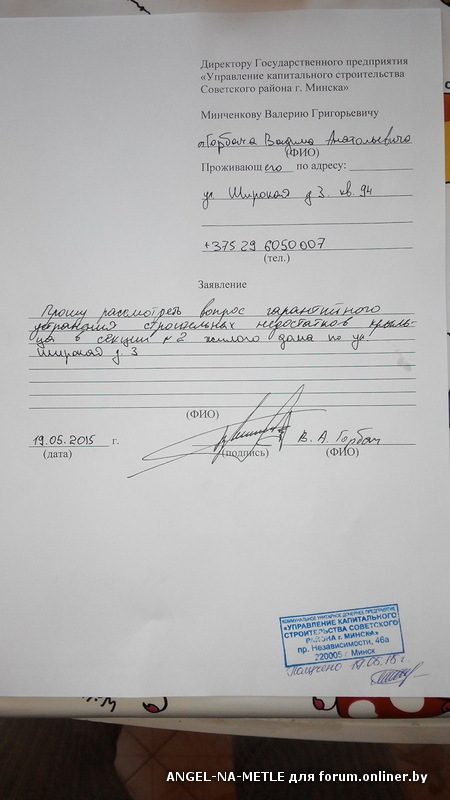 Директору Государственного предприятия
«Управление капитального строительства
Советского района г. Минска»
Минченкову Валерию Григорьевичу
Горбача Вадима Анатольевича
(ФИО)
Проживающего по адресу:
ул. Широкая д 3. кв. 94
+375 29 6050007
(тел.)
Заявление
Прошу рассмотреть вопрос гарантийного
устранения строительных недостатков крыль-
ца в секции №2 жилого дома по ул.
Широкая д. 3
(ФИО)
19.05.2015 г. В. А. Горбач
(дата) (подпись) (ФИО)
КОММУНАЛЬНОЕ УНИТАРНОЕ ДОЧЕРНЕЕ ПРЕДПРИЯТИЕ
«УПРАВЛЕНИЕ КАПИТАЛЬНОГО
СТРОИТЕЛЬСТВА СОВЕТСКОГО
РАЙОНА г. МИНСКА»
пр. Независимости, 46а
220005 г. Минск
Получено 19.05.15 г.
ANGEL-NA-METLE для forum.onliner.by